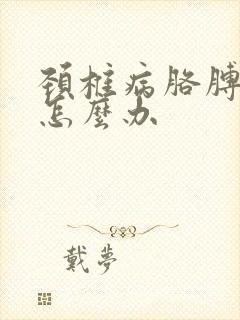 頚椎病胳膊
怎麼办
戴夢